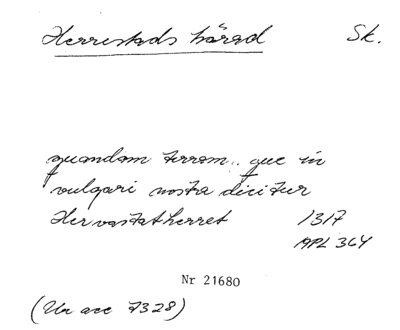 Herrestads härad Sk.
quandam terram.. que in
vulgari nostra dicitur
Hervastatherret 1317
APL 364
Nr 21680
(Ur acc 7328)